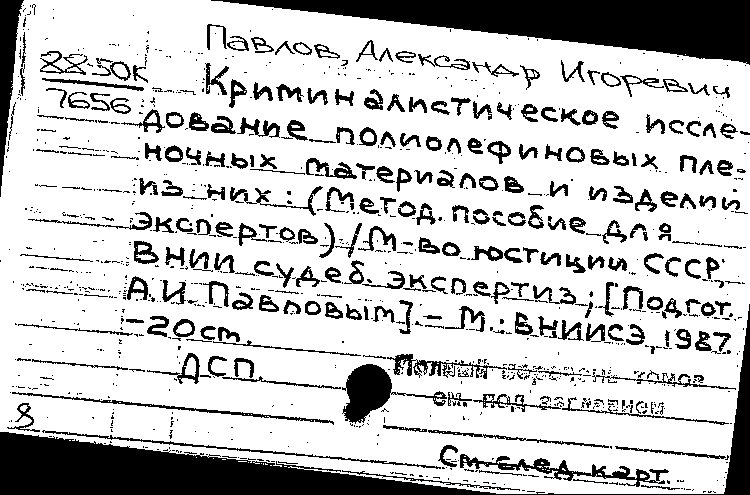 Павлов, Александр Игоревич
88-50К
7656
Криминалистическое иссле-
дование полиолефиновых пле-
ночных материалов и изделий
из них: (Метод. пособие для
экспертов) / М-во юстиции СССР,
ВНИИ судеб. экспертиз; [Подгот.
А.И. Павловым]. – М.: ВНИИСЭ, 1987.
– 20 см.
ДСП.
Полный перечень томов
см. под заглавием
8
См. след. карт.